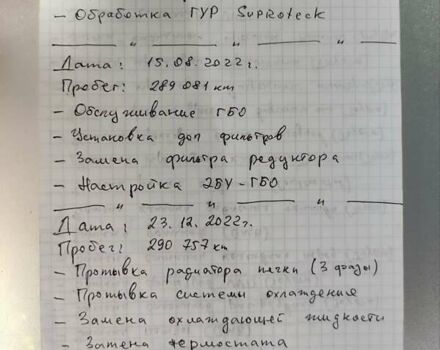 - Обработка ГУР Suproteck
" " " "
Дата: 15.08.2022г.
Пробег: 289 081 km
- Обслуживание ГБО
- Установка доп фильтров
- Замена фильтра редуктора
- Настройка ЭБУ-ГБО
" " " "
Дата: 23.12.2022г.
Пробег: 290 757 km
- Промывка радиатора печки (3 фазы)
- Промывка системы охлаждение
- Замена охлаждающей жидкости
- Замена термостата